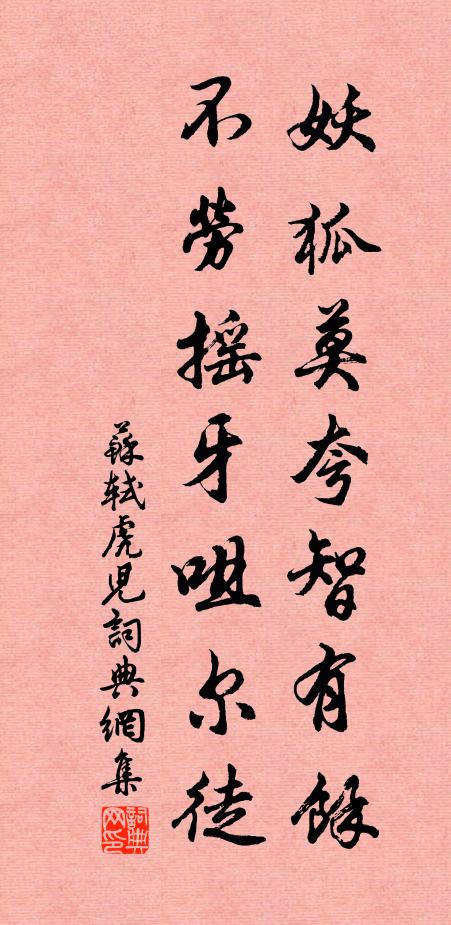 妖狐莫夸智有餘
不勞摇牙咀尔徒
蘇軾虎児詞典網集
詞典网印